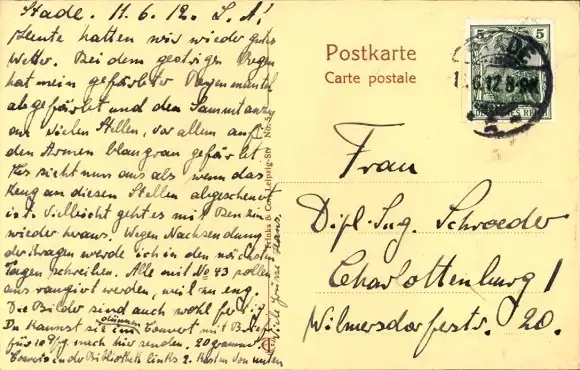 Stade. 11.6.12. L. A.!
Heute hatten wir wieder gutes
Wetter. Bei dem gestrigen Regen
hat mein gefärbter Regenmantel
abgefärbt und den Sammtanzug
an vielen Stellen, vor allem auf
den Armen blaugrau gefärbt.
Es sieht nun aus als wenn das
Zeug an diesen Stellen abgescheuert
ist. Vielleicht geht es mit Benzin
wieder heraus. Wegen Nachsendung
der Kragen werde ich in den nächsten
Tagen schreiben. Alle mit No 43 sollen
aus rangiert werden, weil zu eng.
Die Bilder sind auch wohl fertig.
Du kannst sie im dünnen Couvert mit
für 10 Pfg nach hier senden. 20 gramm
Couverts in der Bibliothek links 2. Kasten von unten
Viele Grüsse Hans.
Postkarte
Carte postale
5 5
DEUTSCHES REICH
STADE
6.12.8-9
Frau
Dipl.-Ing. Schroeder
Charlottenburg 1
Wilmersdorferstr. 20.
Leipzig